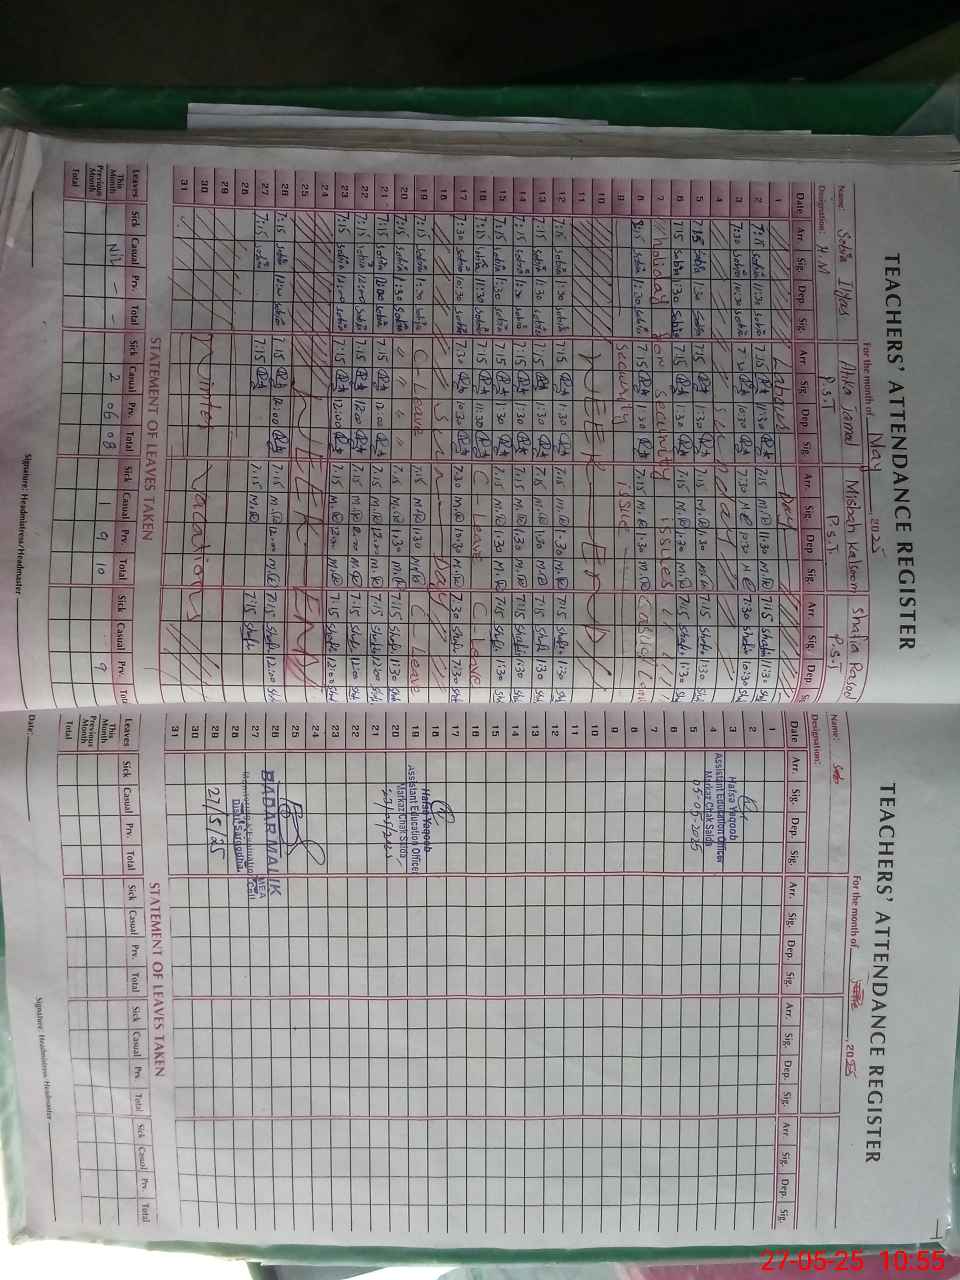 TEACHERS' ATTENDANCE REGISTER
For the month of May, 2025
Name: Sobia Ilyas
Designation: H.M
Anka Jamal
P.S.T
Misbah Kalsoom
P.S.T.
Shafia Batool
P.S.T
Date Arr. Sig. Dep. Sig. Arr. Sig. Dep. Sig. Arr. Sig. Dep Sig. Arr Sig. Dep.
1 Labour Day
2 7:15 Sobia 11:30 Sobia 7:30 11:30 7:15 M.R 11:30 M.R 7:15 Shafi 11:30
3 7:30 Sobia 10:30 Sobia 7:30 10:30 7:30 10:30 7:30 Shafi 10:30
4 Sunday
5 7:15 Sobia 1:30 Sobia 7:15 1:30 7:15 M.R 1:30 7:15 Shafi 1:30
6 7:15 Sobia 1:30 Sobia 7:15 1:30 7:15 M.R 1:30 M.R 7:15 Shafi 1:30
7 Holiday for security issues
8 8:15 Sobia 1:30 Sobia 7:15 1:30 7:15 M.R 1:30 M.R Casual Leave
9 security issue
10 WEEK END
11
12 7:15 Sobia 1:30 Sobia 7:15 1:30 7:15 M.R 1:30 M.R 7:15 Shafi 1:30
13 7:15 Sobia 1:30 Sobia 7:15 1:30 7:15 M.R 1:30 M.R 7:15 Shafi 1:30
14 7:15 Sobia 1:30 Sobia 7:15 1:30 7:15 M.R 1:30 M.R 7:15 Shafi 1:30
15 7:15 Sobia 1:30 Sobia 7:15 1:30 7:15 M.R 1:30 M.R 7:15 Shafi 1:30
16 7:15 Sobia 11:30 Sobia 7:15 11:30 C-Leave C-Leave
17 7:30 Sobia 10:30 Sobia 7:30 10:30 7:30 M.R 10:30 M.R 7:30 Shafi
18 Sunday
19 7:15 Sobia 1:30 Sobia C-Leave 7:15 M.R 1:30 M.R C-Leave
20 7:15 Sobia 1:30 Sobia " " " " 7:15 M.R 1:30 M.R 7:15 Shafi 11:30
21 7:15 Sobia 12:00 Sobia 7:15 12:00 7:15 M.R 12:00 M.R 7:15 Shafi 12:00
22 7:15 Sobia 12:00 Sobia 7:15 12:00 7:15 M.R M.R 7:15 Shafi 12:00
23 7:15 Sobia 12:00 Sobia 7:15 12:00 7:15 M.R 12:00 M.R 7:15 Shafi 12:00
24 WEEK END
25
26 7:15 Sobia 12:00 Sobia 7:15 12:00 7:15 M.R 12:00 M.R 7:15 Shafi 12:00
27 7:15 Sobia 7:15 7:15 M.R 7:15 Shafi
28
29 Winter Vacations
30
31
STATEMENT OF LEAVES TAKEN
Leaves Sick Casual Prv. Total Sick Casual Prv. Total Sick Casual Prv. Total Sick Casual Prv. Total
This Month Nil - - 2 06 08 1 9 10 9
Previous Month
Total
Signature: Headmistress/Headmaster
TEACHERS' ATTENDANCE REGISTER
For the month of June, 2025
Name:
Designation:
Date Arr. Sig. Dep. Sig. Arr. Sig. Dep. Sig. Arr. Sig. Dep. Sig. Arr Sig. Dep. Sig.
1
2
3
4
5
6
7
8
9
10
11
12
13
14
15
16
17
18
19
20
21
22
23
24
25
26
27
28
29
30
31
Hafsa Yaqoob
Assistant Education Officer
Markaz Chak Saida
05-05-2025
Hafsa Yaqoob
Assistant Education Officer
Markaz Chak Saida
BADAR MALIK
MEA
Monitoring & Evaluation Cell
Distt. Sargodha.
27/5/25
STATEMENT OF LEAVES TAKEN
Leaves Sick Casual Prv. Total Sick Casual Prv. Total Sick Casual Prv. Total Sick Casual Prv. Total
This Month
Previous Month
Total
Date:
Signature: Headmistress/Headmaster
27-05-25 10:55